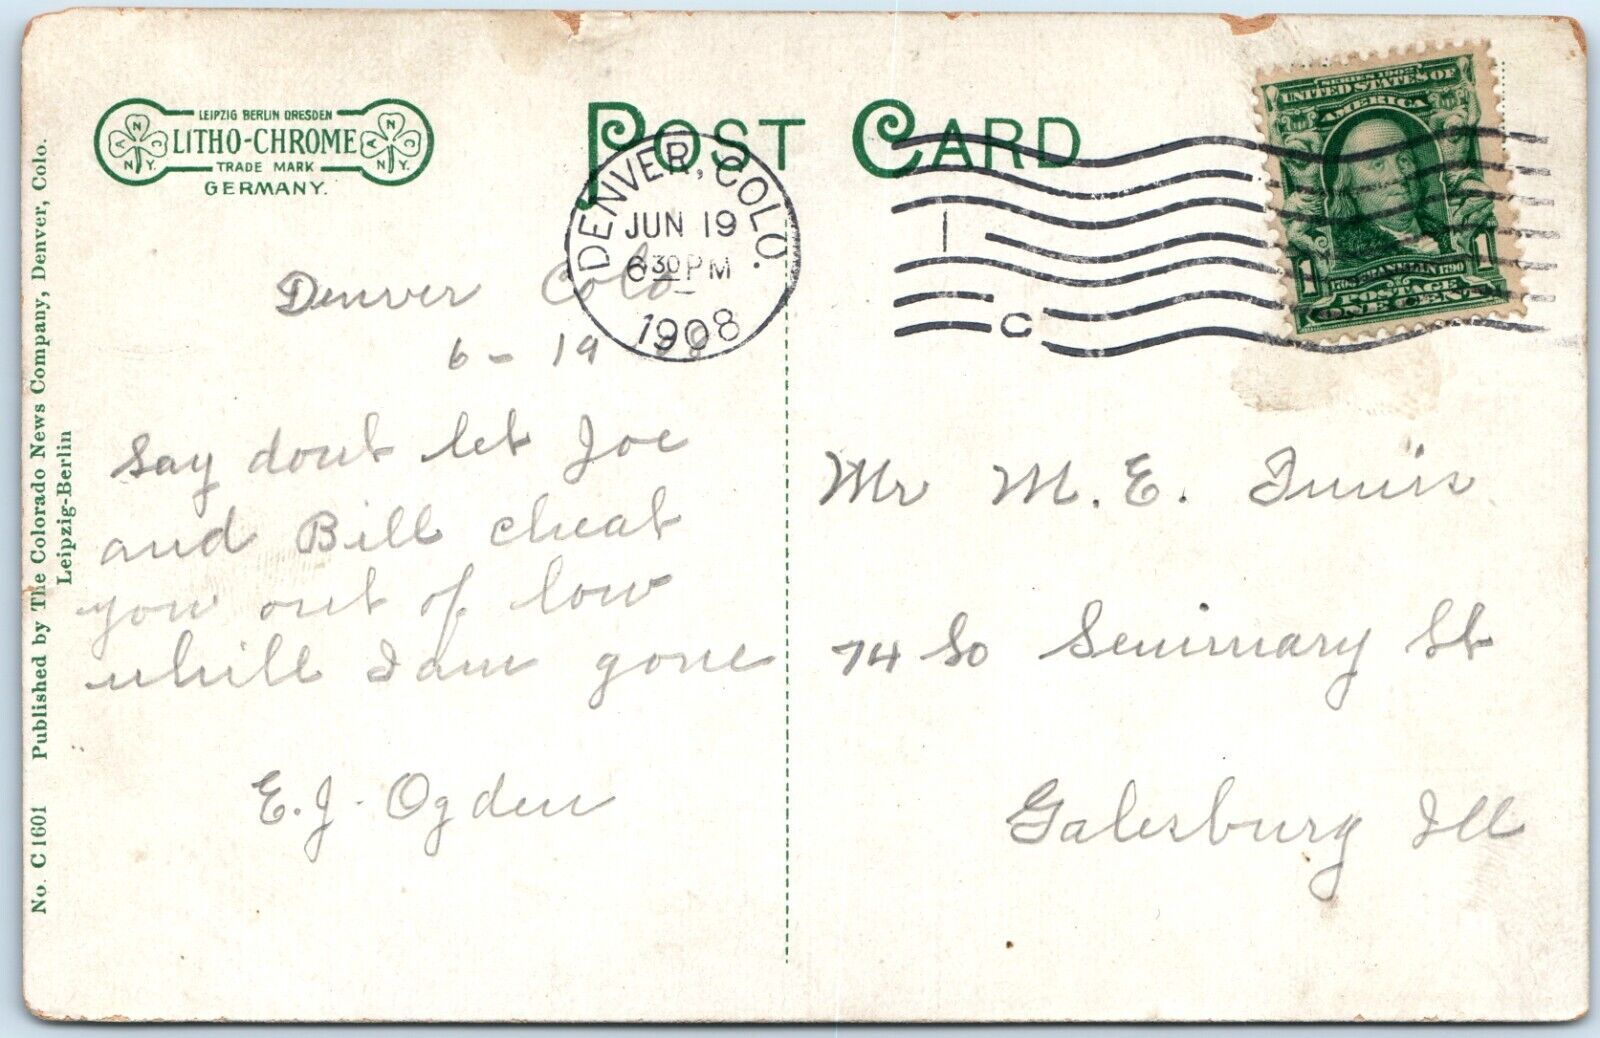 LEIPZIG BERLIN DRESDEN
LITHO-CHROME
TRADE MARK
GERMANY.
A N C
N.Y.
A N C
N.Y.
POST CARD
DENVER, COLO.
JUN 19
6 30 PM
1908
1
C
SERIES 1902
UNITED STATES OF
AMERICA
FRANKLIN
1706 1790
POSTAGE
1 1
ONE CENT
No. C 1601 Published by The Colorado News Company, Denver, Colo.
Leipzig-Berlin
Denver Colo
6 - 19 08
Say dont let Joe
and Bill cheat
you out of low
whill I am gone
E. J. Ogden
Mr M. E.
74 So Seminary St
Galesburg Ill